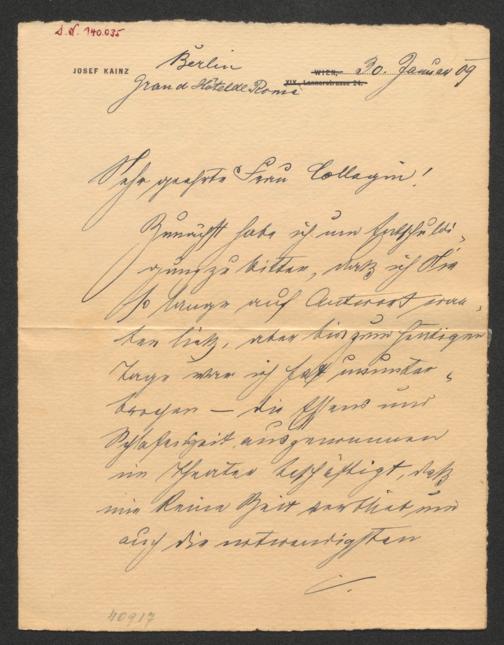 J. N. 140.035
JOSEF KAINZ
Berlin
Grand Hotel de Rome
WIEN,
XIX., Lannerstrasse 24.
30. Januar 09
Sehr geehrte Frau Collegin!
Zunächst habe ich um Entschuldi-
gung zu bitten, daß ich Sie
so lange auf Antwort war-
ten ließ, aber bis zum heutigen
Tage war ich fast ununter-
brochen – die Essens und
Schlafenszeit ausgenommen
im Theater beschäftigt, daß
mir keine Zeit verblieb um
auch die notwendigsten
40917